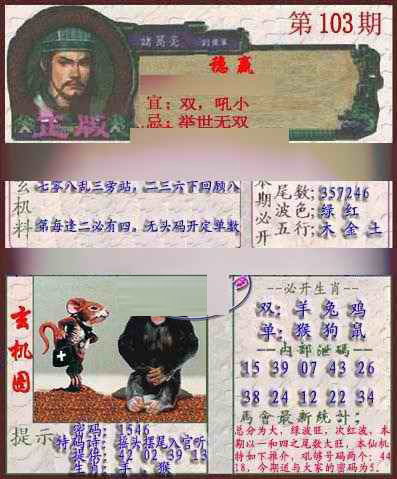 第103期
諸葛亮
穩赢
宜：双，吼小
忌：举世无双
正版
玄机料
七零八乱三旁站，二三六下回顾八
第海逢二必有四。无头码开定单数
本期必开
尾数；357246
波色；绿 红
五行；木 金 土
玄机图
提示
密码：1546
特码诗：接头摆尾入官听
提倍：42 02 39 13
生肖：羊，猴
--必开生肖--
双：羊 兔 鸡
单：猴 狗 鼠
--内部泄码--
15 39 07 43 26
38 24 12 22 34
马會最新统计；
总分为大，绿波旺，次红波，本
期以一和四之尾数大旺，本仙机
特如下推介，吼够号码两个：44
18，今期送与大家的密码为5．